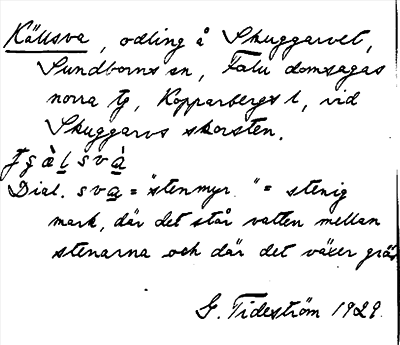 Källsva, odling å Skuggarvet,
Sundborns sn, Falu domsagas
norra tg, Kopparbergs l, vid
Skuggarvs skorsten.
tʃàl̲svà̲
Dial. sva̲ = "stenmyr" = stenig
mark, där det står vatten mellan
stenarna och där det växer gräs
G. Tideström 1929.